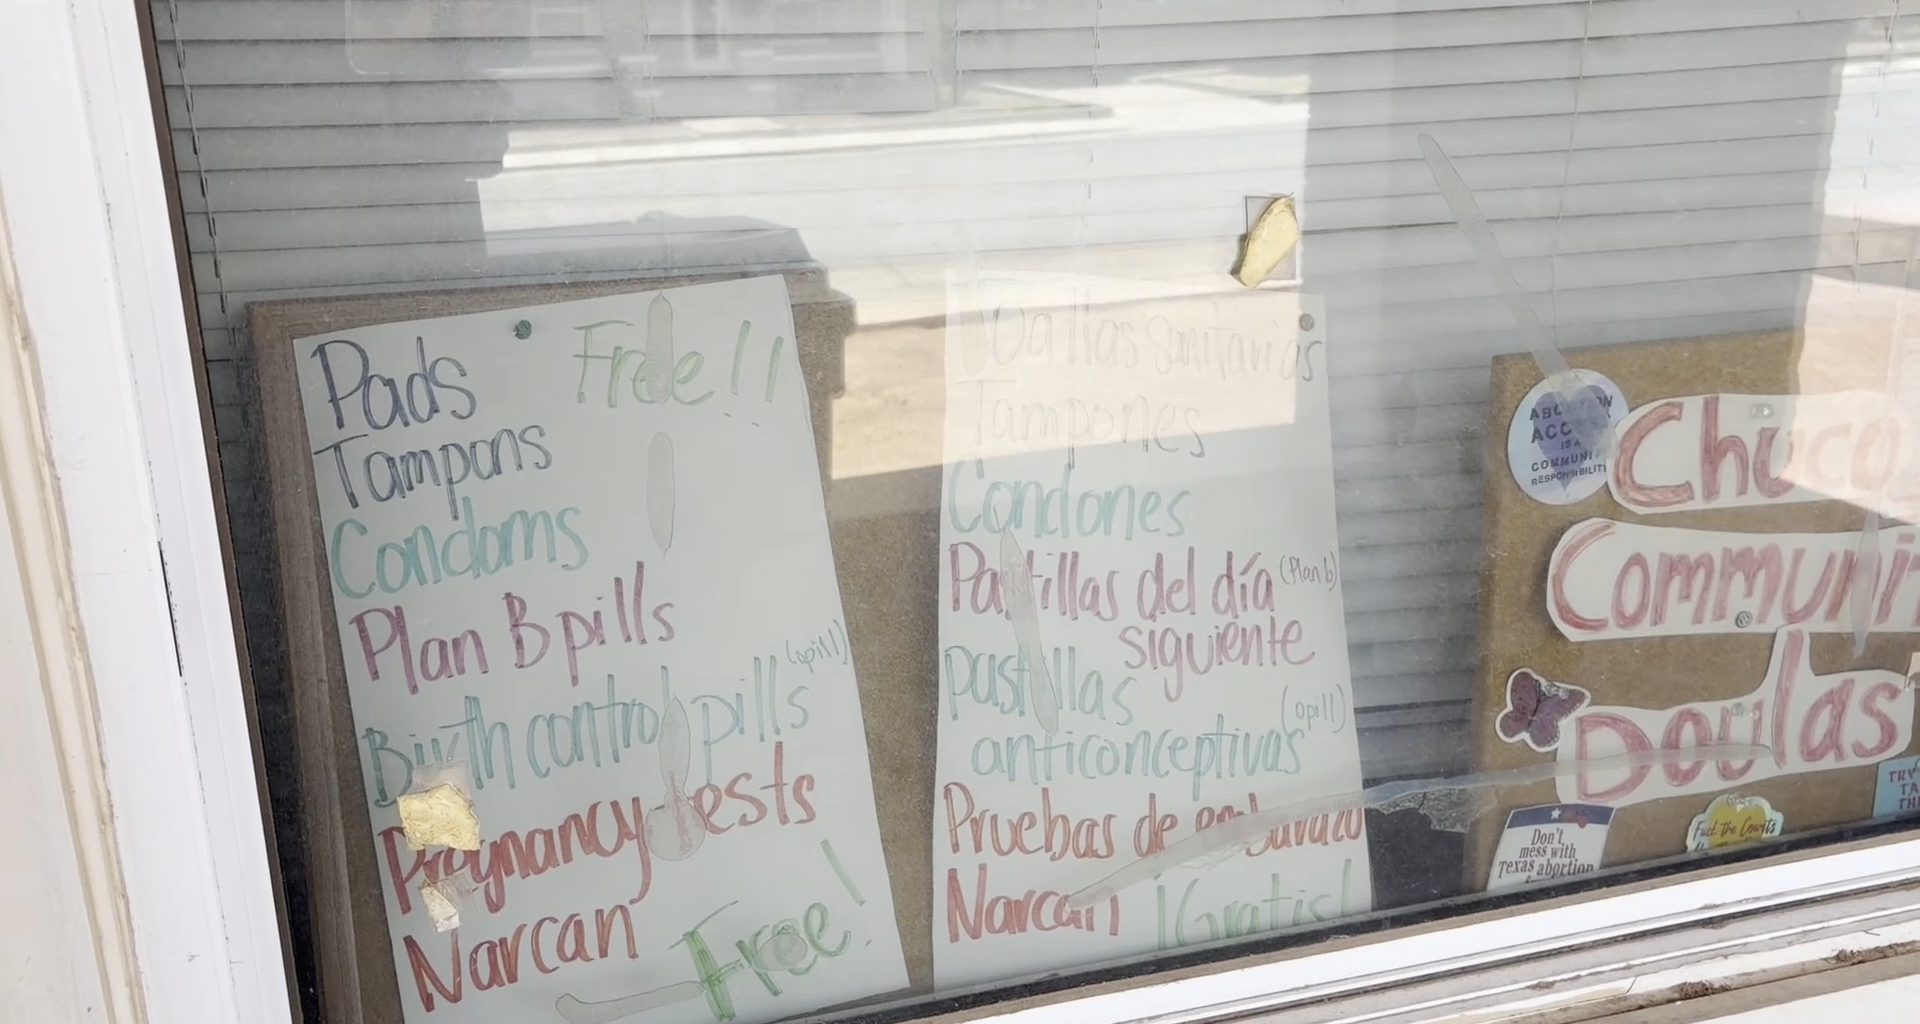 Pads Free!!
Tampons
Condoms
Plan B pills
Birth control pills (opill)
Pregnancy tests
Narcan
Free!
Toallas sanitarias
Tampones
Condones
Pastillas del día (Plan b)
siguiente
pastillas
anticonceptivas (opill)
Pruebas de embarazo
Narcan ¡Gratis!
ABORTION
ACCESS
IS A
COMMUNITY
RESPONSIBILITY
Chuco
Communi
Doulas
Don't
mess with
Texas abortion
Fuck the Courts
TRY
TA
TH